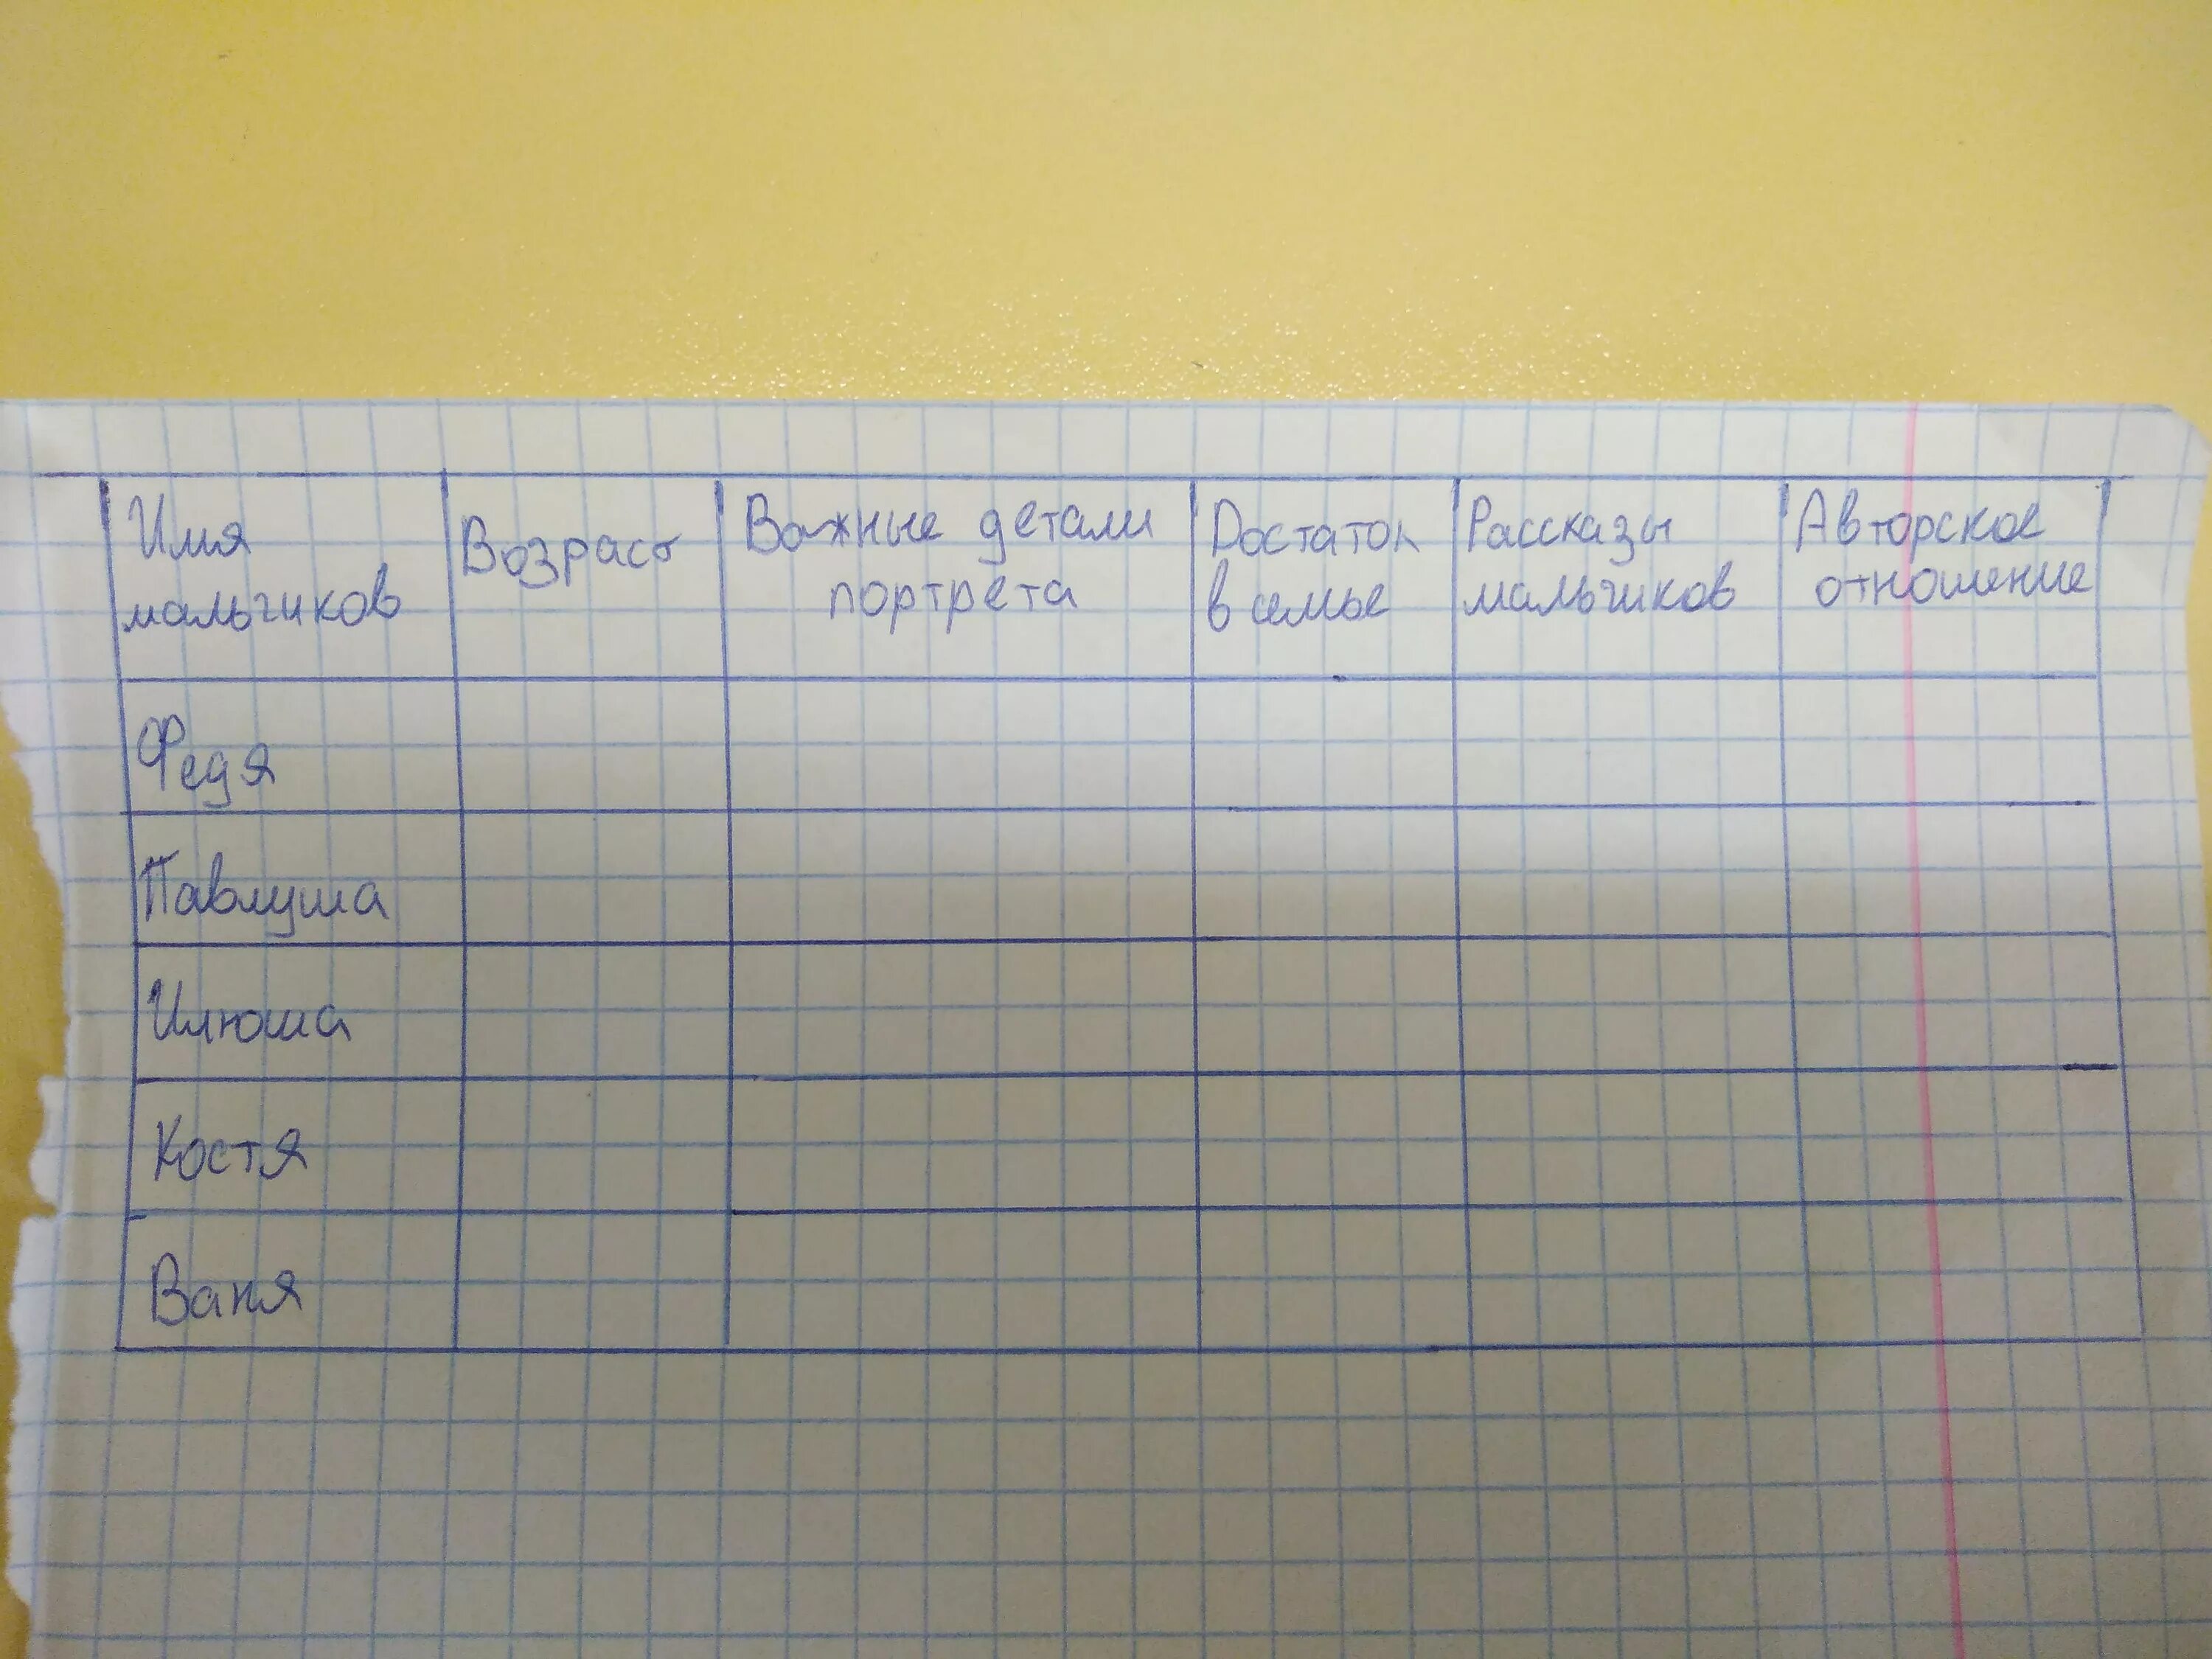 Имя мальчиков
Возраст
Важные детали портрета
Достаток в семье
Рассказы мальчиков
Авторское отношение
Федя
Павлуша
Илюша
Костя
Ваня